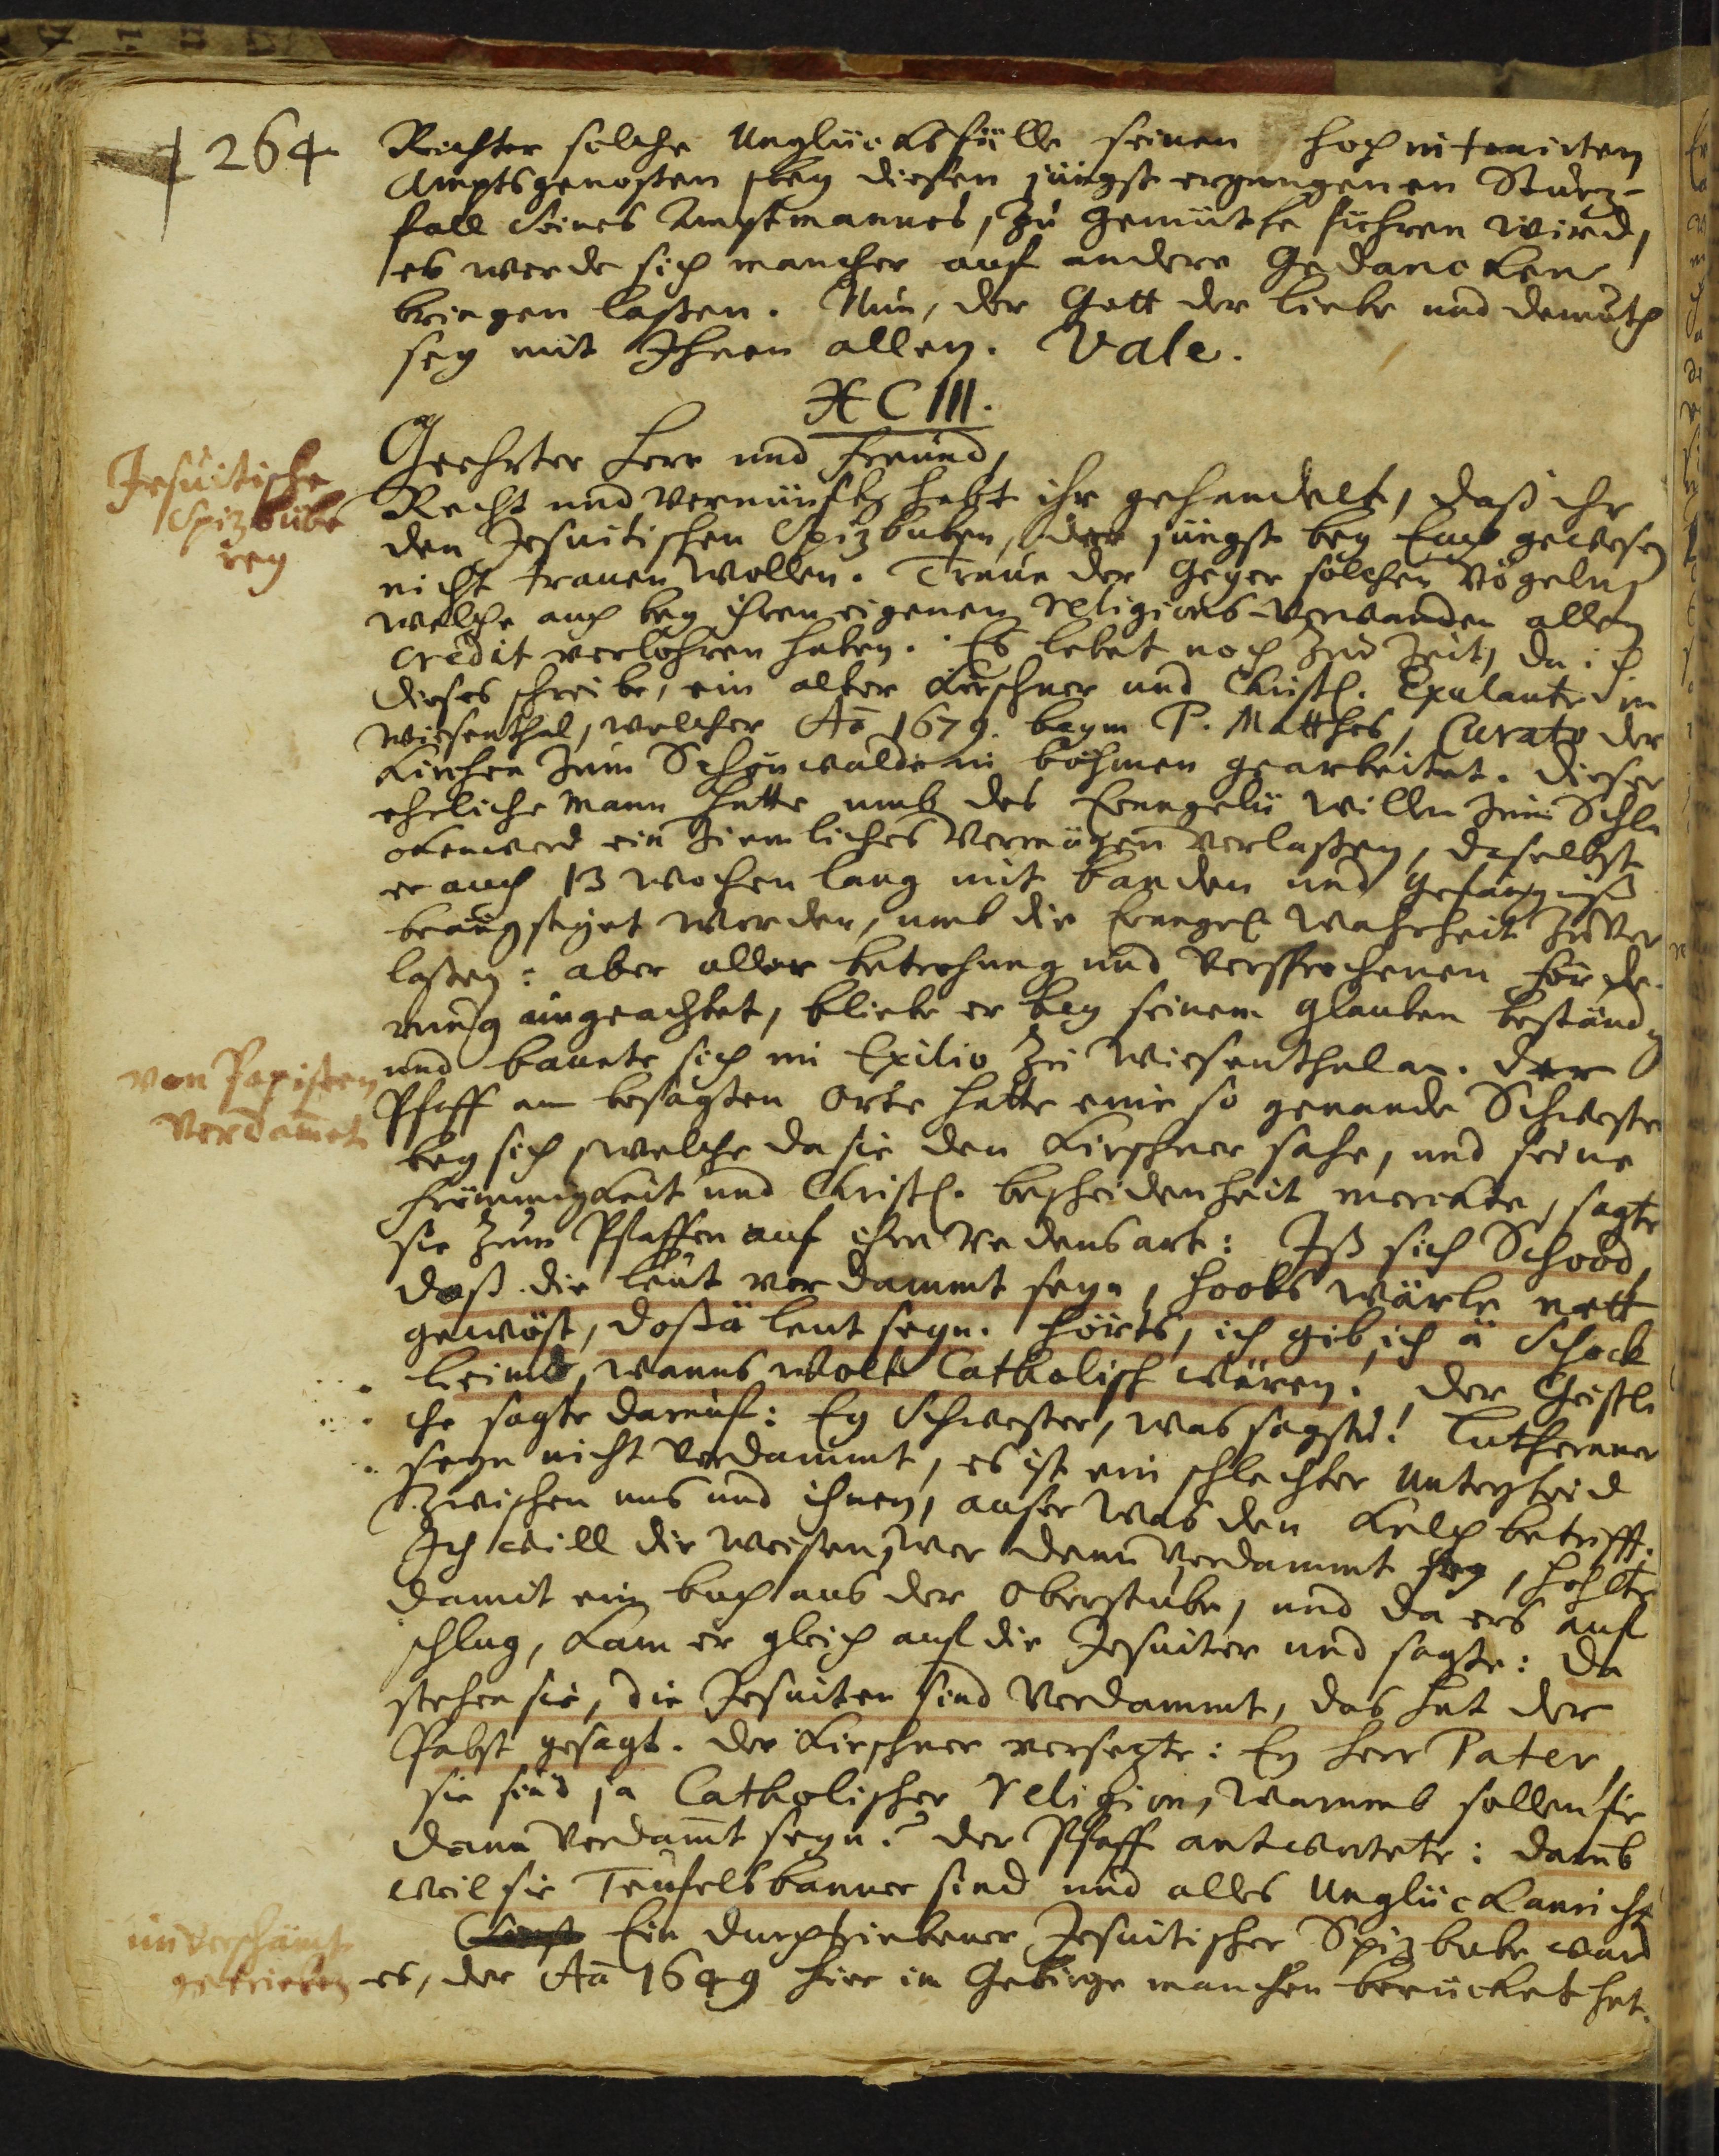 264
Richter solche Unglücksfälle seinen hochintonirten
Amptsgenossen bey diesen jüngst ergangenen Sturz-
fall Seines Amptmannes, zu gemüthe führen wird,
es werde sich mancher auf andere Gedancken
bringen laßen. Nun, der Gott der liebe und demuth
sey mit Ihnen allen. Vale.
XCIII.
Geehrter Herr und Freund,
Jesuitische
Spizbübe
rey
Recht und vernünftig habt ihr gehandelt, daß ihr
den Jesuitischen Spizbuben, der jüngst bey Euch gewesen
nicht trauen wollen. Traue der Geyer solchen Vögeln,
welche auch bey ihren eigenen religions-Verwanden allen
credit verlohren haben. Es lebet noch zur Zeit, da ich
dieses schreibe, ein alter Kirschner und Christl. Exulante in
Wiesenthal, welcher Aō 1679. beym P. Matthes, Curato der
Kirchen zum Schönwalde in böhmen gearbeitet. Dieser
ehrliche Mann hatte umb des Evangelii willen zum Schla
ckenwerd ein ziemliches Vermögen verlaßen, daselbst
er auch 13 wochen lang mit banden und Gefängniß
beängstiget worden, umb die Evangel. Wahrheit zu ver
laßen: aber aller betrohung und versprochenen förde-
rung ungeachtet, bliebe er bey seinem glauben beständig
und bauete sich im Exilio zu Wiesenthal an. Der
von Papisten
verdam̄et
Pfaff am besagten Orte hatte eine so genande Schwester
bey sich, welche da sie den Kirschner sahe, und seine
frömmigkeit und Christl. bescheidenheit merckte, sagte
sie zum Pfaffen auf ihre redensart: Iß sich Schood,
daß die leut verdammt seyn, hoobs wärle nett
gewöst, doß ä leut seyn. Hörts, ich gib ich ä Schock
leimb, wanns wolt Catholisch wären. Der Geistli
che sagte darauf: Ey Schwester, was sagstu! Lutheraner
seyn nicht verdammt, es ist ein schlechter Unterscheid
zwischen uns und ihnen, auser was den Kelch betrifft.
Ich will dir weisen, wer denn verdammt sey, hohlte
damit ein buch aus der Oberstube, und da ers auf
schlug, kam er gleich auf die Jesuiter und sagte: Da
stehen sie, die Jesuiten sind verdammt, das hat der
Pabst gesagt. Der Kirschner versezte: Ey Herr Pater,
sie sind ja Catholischer religion, warumb sollen sie
denn verdam̄t seyn? Der Pfaff antwortete: darumb
weil sie Teufelsbanner sind und alles Unglück anricht
unverschämt
getrieben
Ein durchtriebener Jesuitischer Spizbube ward
es, der Aō 1649 hier im Gebirge manchen berücket hat.